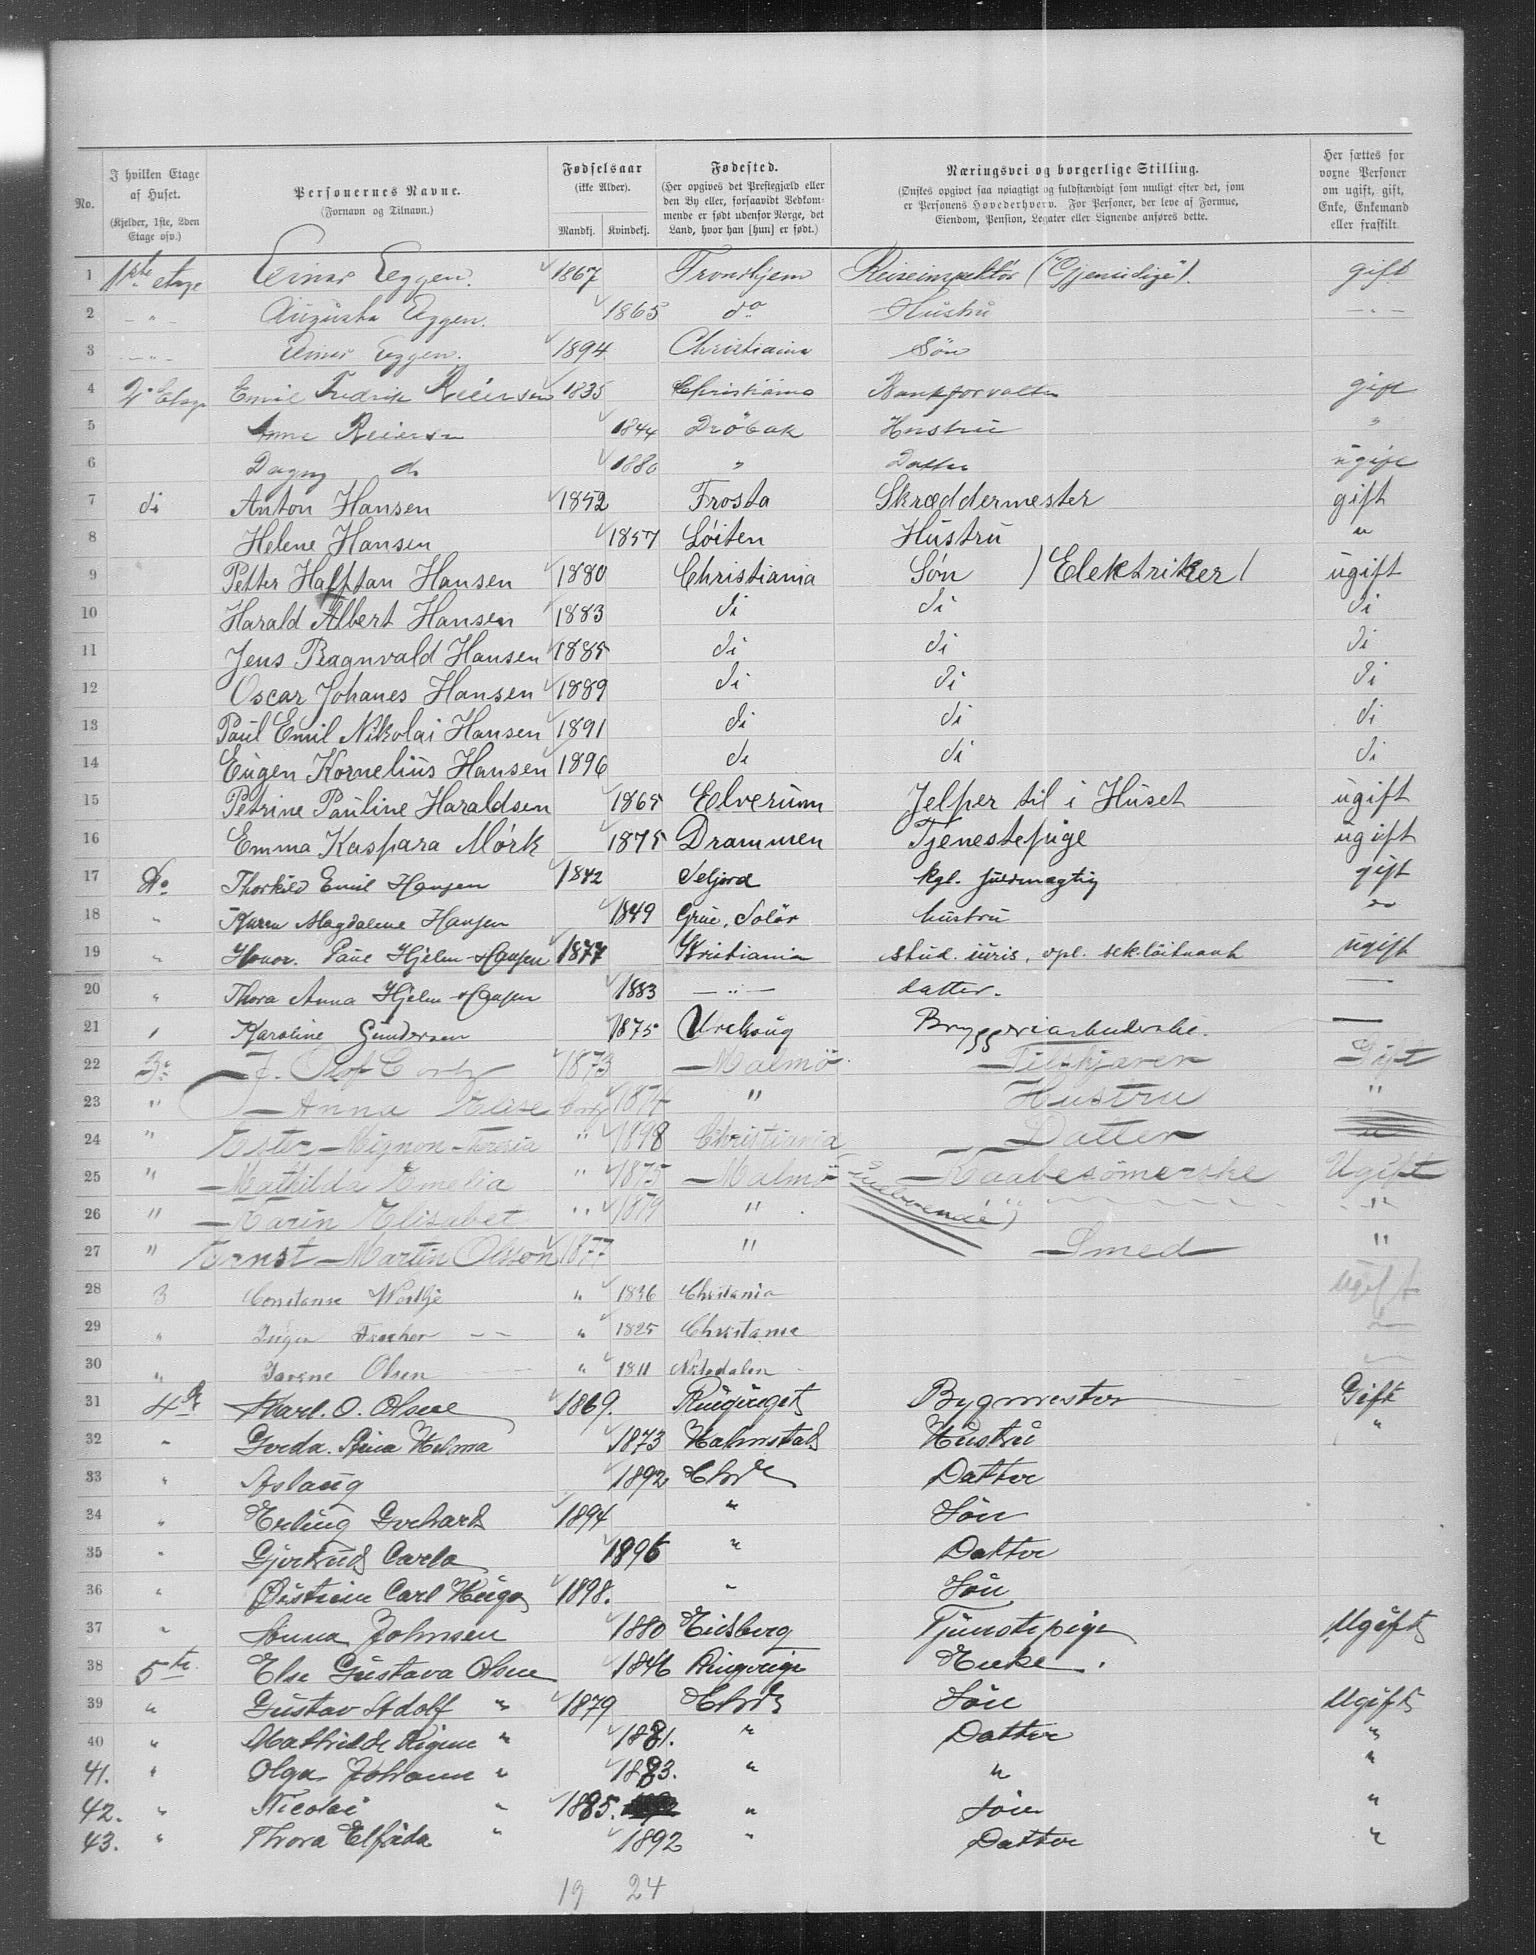 No.
I hvilken Etage af Huset.
(Kjelder, 1ste, 2den Etage osv.)
Personernes Navne.
(Fornavn og Tilnavn.)
Fødselsaar
(ikke Alder).
Mandkj. Kvindekj.
Fødested.
(Her opgives det Prestegjæld eller den By eller, forsaavidt Bedkommende er født udenfor Norge, det Land, hvor han [hun] er født.)
Næringsvei og borgerlige Stilling.
(Ønskes opgivet saa nøiagtigt og fuldstændigt som muligt efter det, som er Personens Hovederhverv. For Personer, der leve af Formue, Eiendom, Pension, Legater eller Lignende anføres dette.)
Her sættes for voxne Personer om ugift, gift, Enke, Enkemand eller fraskilt.
1 1ste etage Einar Eggen. 1867 Trondhjem Reiseinspektör ("Gjensidige"). gift
2 — " — Augusta Eggen. 1865 do Hustru — " —
3 — " — Einar Eggen. 1894 Christiania Sön
4 2. Etage Emil Fredrik Reiersen 1835 Christiania Bankforvalter gift
5 Anne Reiersen 1844 Dröbak Hustru "
6 Dagny do 1880 " Datter ugift
7 di Anton Hansen 1852 Frosta Skræddermester gift
8 Helene Hansen 1857 Löiten Hustru "
9 Petter Halftan Hansen 1880 Christiania Sön (Elektriker) ugift
10 Harald Albert Hansen 1883 di di di
11 Jens Ragnvald Hansen 1885 di di di
12 Oscar Johanes Hansen 1889 di di di
13 Paul Emil Nikolai Hansen 1891 di di di
14 Eugen Kornelius Hansen 1896 di di di
15 Petrine Pauline Haraldsen 1865 Elverum Jelper til i Huset ugift
16 Emma Kaspara Mörk 1875 Drammen Tjenestepige ugift
17 Do Thorkild Emil Hansen 1842 Seljord kgl. fuldmægtig gift
18 " Karen Magdalene Hansen 1849 Grue, Solör hustru "
19 " Paul Hjelm-Hansen 1877 Kristiania stud. iuris, vpl. sek.löitnant ugift
20 " Thora Anna Hjelm-Hansen 1883 — " — datter. —
21 " Karoline Gundersen 1875 Urskoug Bryggeriarbeiderske. —
22 3. J. Olof 1873 Malmö Tilskjærer Gift
23 " Anna Elise 1874 " Hustru "
24 " Ester Mignon Teresia " 1898 Christiania Datter
25 " Mathilda Emelia " 1875 Malmö Kaabesömerske Ugift
26 " Karin Elisabet " 1879 " "
27 " Ernst Martin Olsson 1877 " Smed "
28 3 Constanse " 1836 Christania ugift
29 " Inger " 1825 Christania
30 " Olsen " 1811 Nitedalen
31 4de Karl. O. Olsen 1869. Ringeriget Bygmester Gift
32 " Gerda. Halmstad 1873 Hustru "
33 " Aslaug 1892 Chra Datter
34 " Erling Gerhard 1894 " Sön
35 " Gjertrud Carla 1896 " Datter
36 " Øistein Carl Hugo 1898. " Sön
37 " Anna Johnsen 1880 Eidsberg Tjenestepige Ugift
38 5te. Else Gustava Olsen 1846 Ringerige Enke.
39 " Gustav Adolf " 1879 Chra Sön Ugift
40 " Mathilde Regine " 1881. " Datter "
41. " Olga Johanne " 1883. " " "
42. " Nicolai " 1885. " Sön "
43. " Thora Elfrida " 1892 " Datter "
19 24